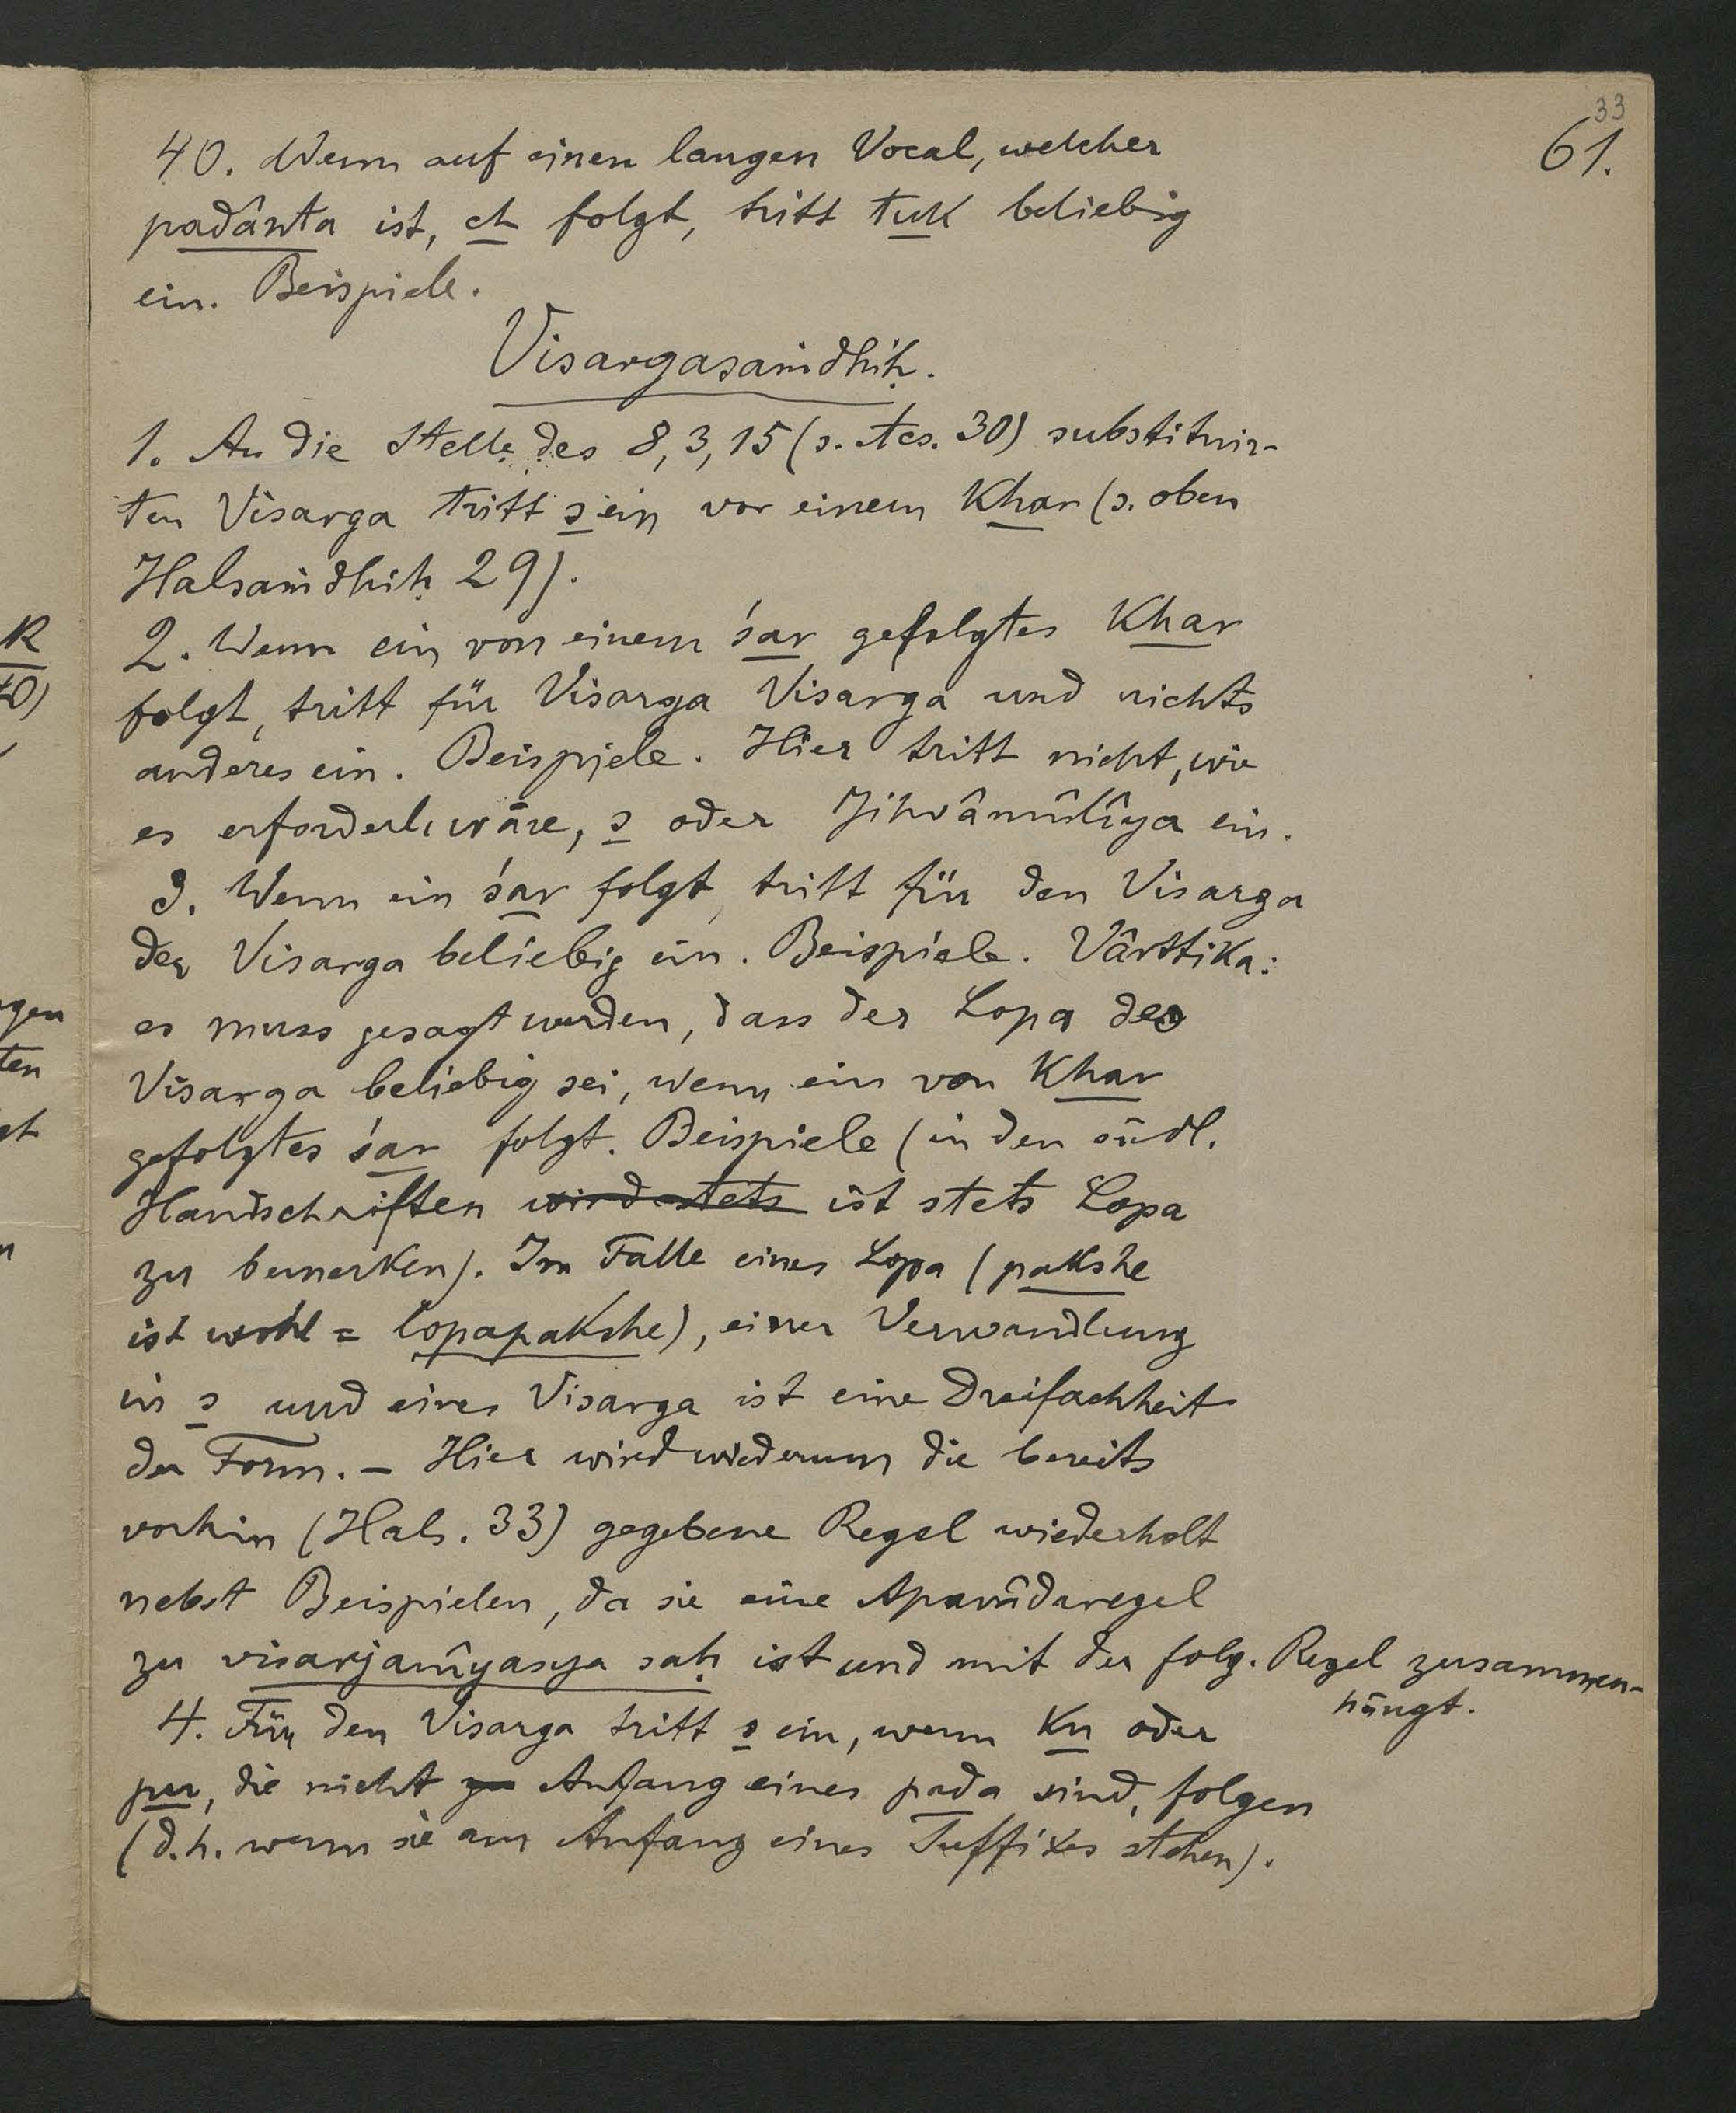 33
61.
40. Wenn auf einen langen Vocal, welcher
padânta ist, ch folgt, tritt tuk beliebig
ein. Beispiele.
Visargasaṁdhiḥ.
1. An die Stelle des 8, 3, 15 (s. Hs. 30) substituir-
ten Visarga tritt s ein vor einem Khar (s. oben
Halsaṁdhiḥ 29).
2. Wenn ein von einem śar gefolgtes Khar
folgt, tritt für Visarga Visarga und nichts
anderes ein. Beispiele. Hier tritt nicht, wie
es erforderl. wäre, s oder Jihvâmûlîya ein.
3. Wenn ein śar folgt, tritt für den Visarga
der Visarga beliebig ein. Beispiele. Vârttika:
es muss gesagt werden, dass der Lopa des
Visarga beliebig sei, wenn ein von Khar
gefolgtes śar folgt. Beispiele (in den südl.
Handschriften wird stets ist stets Lopa
zu bemerken). Im Falle eines Lopa (pakshe
ist wohl = lopapakshe), einer Verwandlung
in s und eines Visarga ist eine Dreifachheit
der Form. – Hier wird wiederum die bereits
vorhin (Hals. 33) gegebene Regel wiederholt
nebst Beispielen, da sie eine Apavâdaregel
zu visarjanîyasya saḥ ist und mit der folg. Regel zusammen-
hängt.
4. Für den Visarga tritt s ein, wenn Ku oder
pu, die nicht zu Anfang eines pada sind, folgen
(d.h. wenn sie am Anfang eines Suffixes stehen).